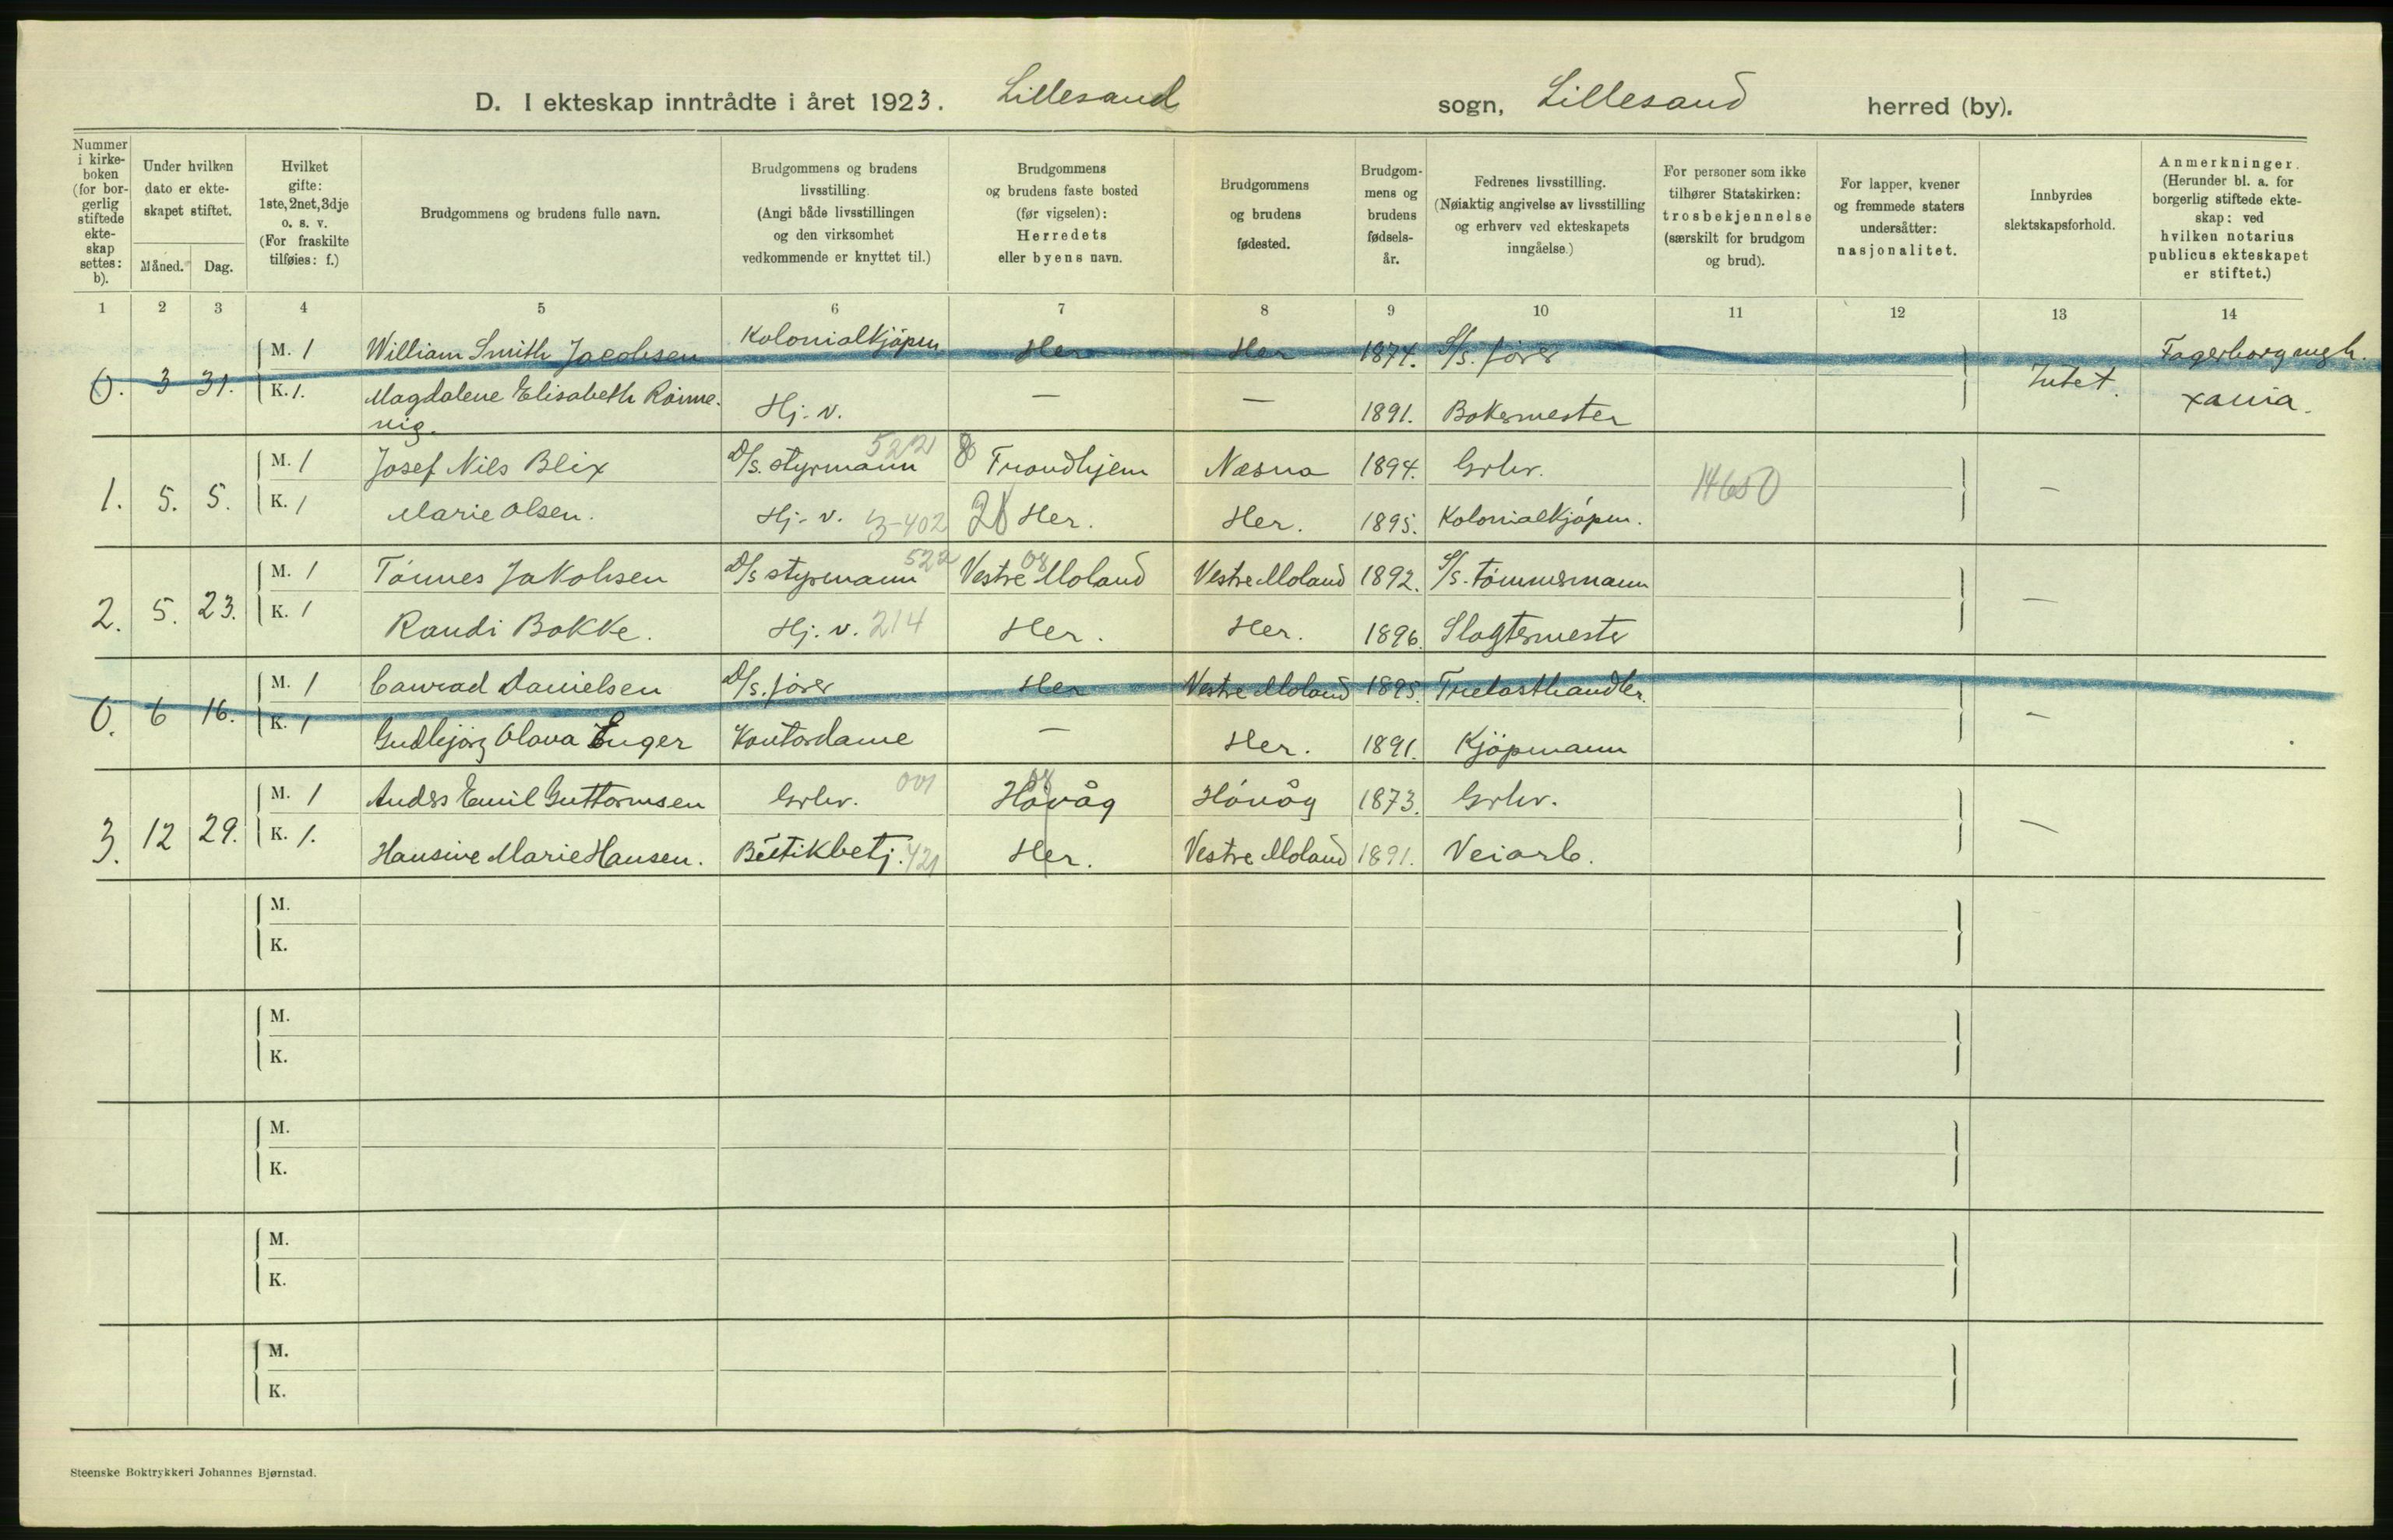 D. I ekteskap inntrådte i året 1923. Lillesand sogn, Lillesand herred (by).
Nummer i kirke-boken (for bor-gerlig stiftede ekte-skap settes: b).
Under hvilken dato er ekte-skapet stiftet.
Måned. Dag.
Hvilket gifte: 1ste, 2net, 3dje o. s. v. (For fraskilte tilføies: f.)
Brudgommens og brudens fulle navn.
Brudgommens og brudens livsstilling. (Angi både livsstillingen og den virksomhet vedkommende er knyttet til.)
Brudgommens og brudens faste bosted (før vigselen): Herredets eller byens navn.
Brudgommens og brudens fødested.
Brudgom-mens og brudens fødsels-år.
Fedrenes livsstilling. (Nøiaktig angivelse av livsstilling og erhverv ved ekteskapets inngåelse.)
For personer som ikke tilhører Statskirken: trosbekjennelse (særskilt for brudgom og brud).
For lapper, kvener og fremmede staters undersåtter: nasjonalitet.
Innbyrdes slektskapsforhold.
Anmerkninger. (Herunder bl. a. for borgerlig stiftede ekte-skap: ved hvilken notarius publicus ekteskapet er stiftet.)
1 2 3 4 5 6 7 8 9 10 11 12 13 14
M. 1 William Smith Jacobsen Kolonialkjöpm Her Her 1874. S/s. förer Fagerborg mgh.
0. 3 31. K. 1. Magdalene Elisabeth Rönne- Hj. v. — — 1891. Bokermester Intet. Xania.
vig.
M. 1 Josef Nils Blix D/s. styrmann 522 8 Trondhjem Nesna 1894. Grbr.
1. 5. 5. K. 1 Marie Olsen. Hj. v. 3-402 21 Her. Her. 1895. Kolonialkjöpm. 14650 —
M. 1 Tönnes Jakobsen D/s styrmann 522 Vestre Moland 08 Vestre Moland 1892. S/s. tömmermann
2. 5. 23. K. 1 Randi Bakke. Hj. v. 214 Her. Her. 1896. Slagtermester —
M. 1 Conrad Danielsen D/s. förer Her Vestre Moland 1895. Trelasthandler.
0. 6 16. K. 1 Gudbjörg Olava Enger Kontordame — Her. 1891. Kjöpmann —
M. 1 Anders Emil Guttormsen Grbr. 001 Hövåg 08 Hövåg 1873. Grbr.
3. 12 29. K. 1. Hansine Marie Hansen. Butikbetj. 421 Her. Vestre Moland 1891. Veiarb. —
M.
K.
M.
K.
M.
K.
M.
K.
M.
K.
Steenske Boktrykkeri Johannes Bjørnstad.